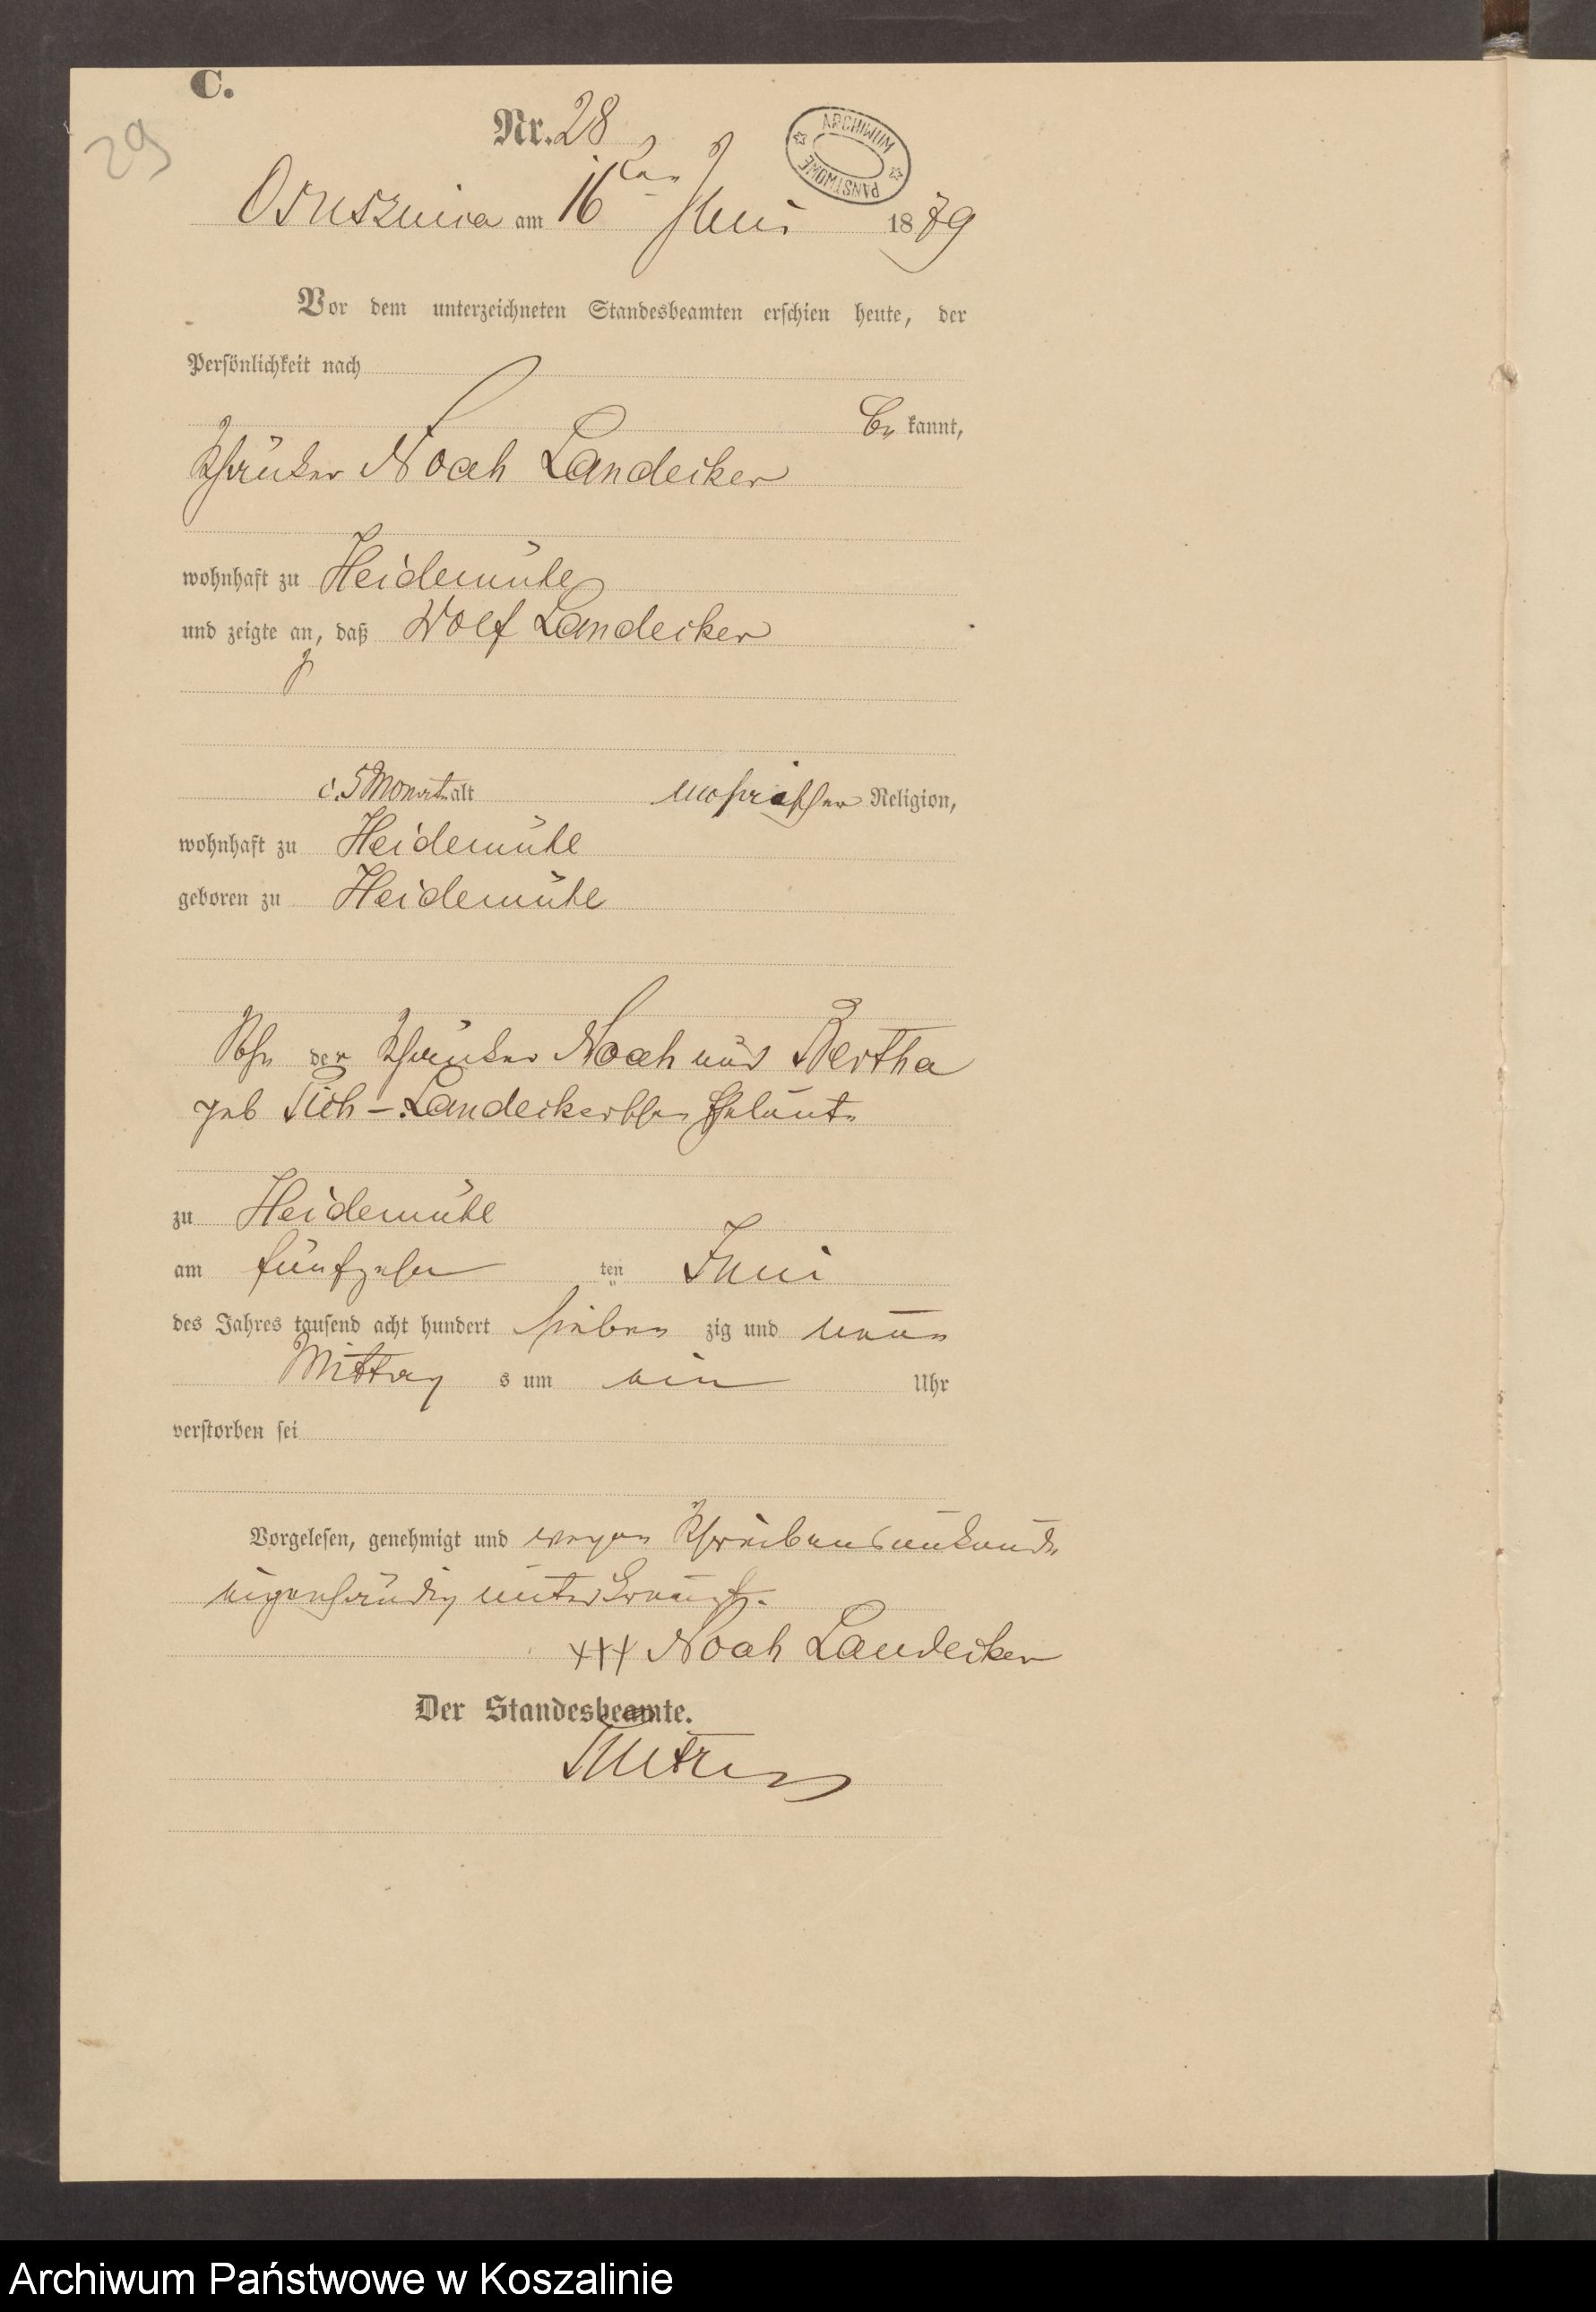 C.
29
Nr. 28
ARCHIWUM PAŃSTWOWE
Osuszniza am 16ten Juni 1879
Vor dem unterzeichneten Standesbeamten erschien heute, der
Persönlichkeit nach
be kannt,
Schänker Noah Landecker
wohnhaft zu Heidemühl
und zeigte an, daß Wolf Landecker
c. 5 Monate alt mosaischer Religion,
wohnhaft zu Heidemühl
geboren zu Heidemühl
Sohn der Schänker Noah und Bertha
geb Landeckerschen Eheleute
zu Heidemühl
am fünfzehn ten Juni
des Jahres tausend acht hundert sieben zig und neun
Mittag s um ein Uhr
verstorben sei
Vorgelesen, genehmigt und wegen Schreibensunkunde
eigenhändig unterkreuzt.
+++ Noah Landecker
Der Standesbeamte.
Archiwum Państwowe w Koszalinie